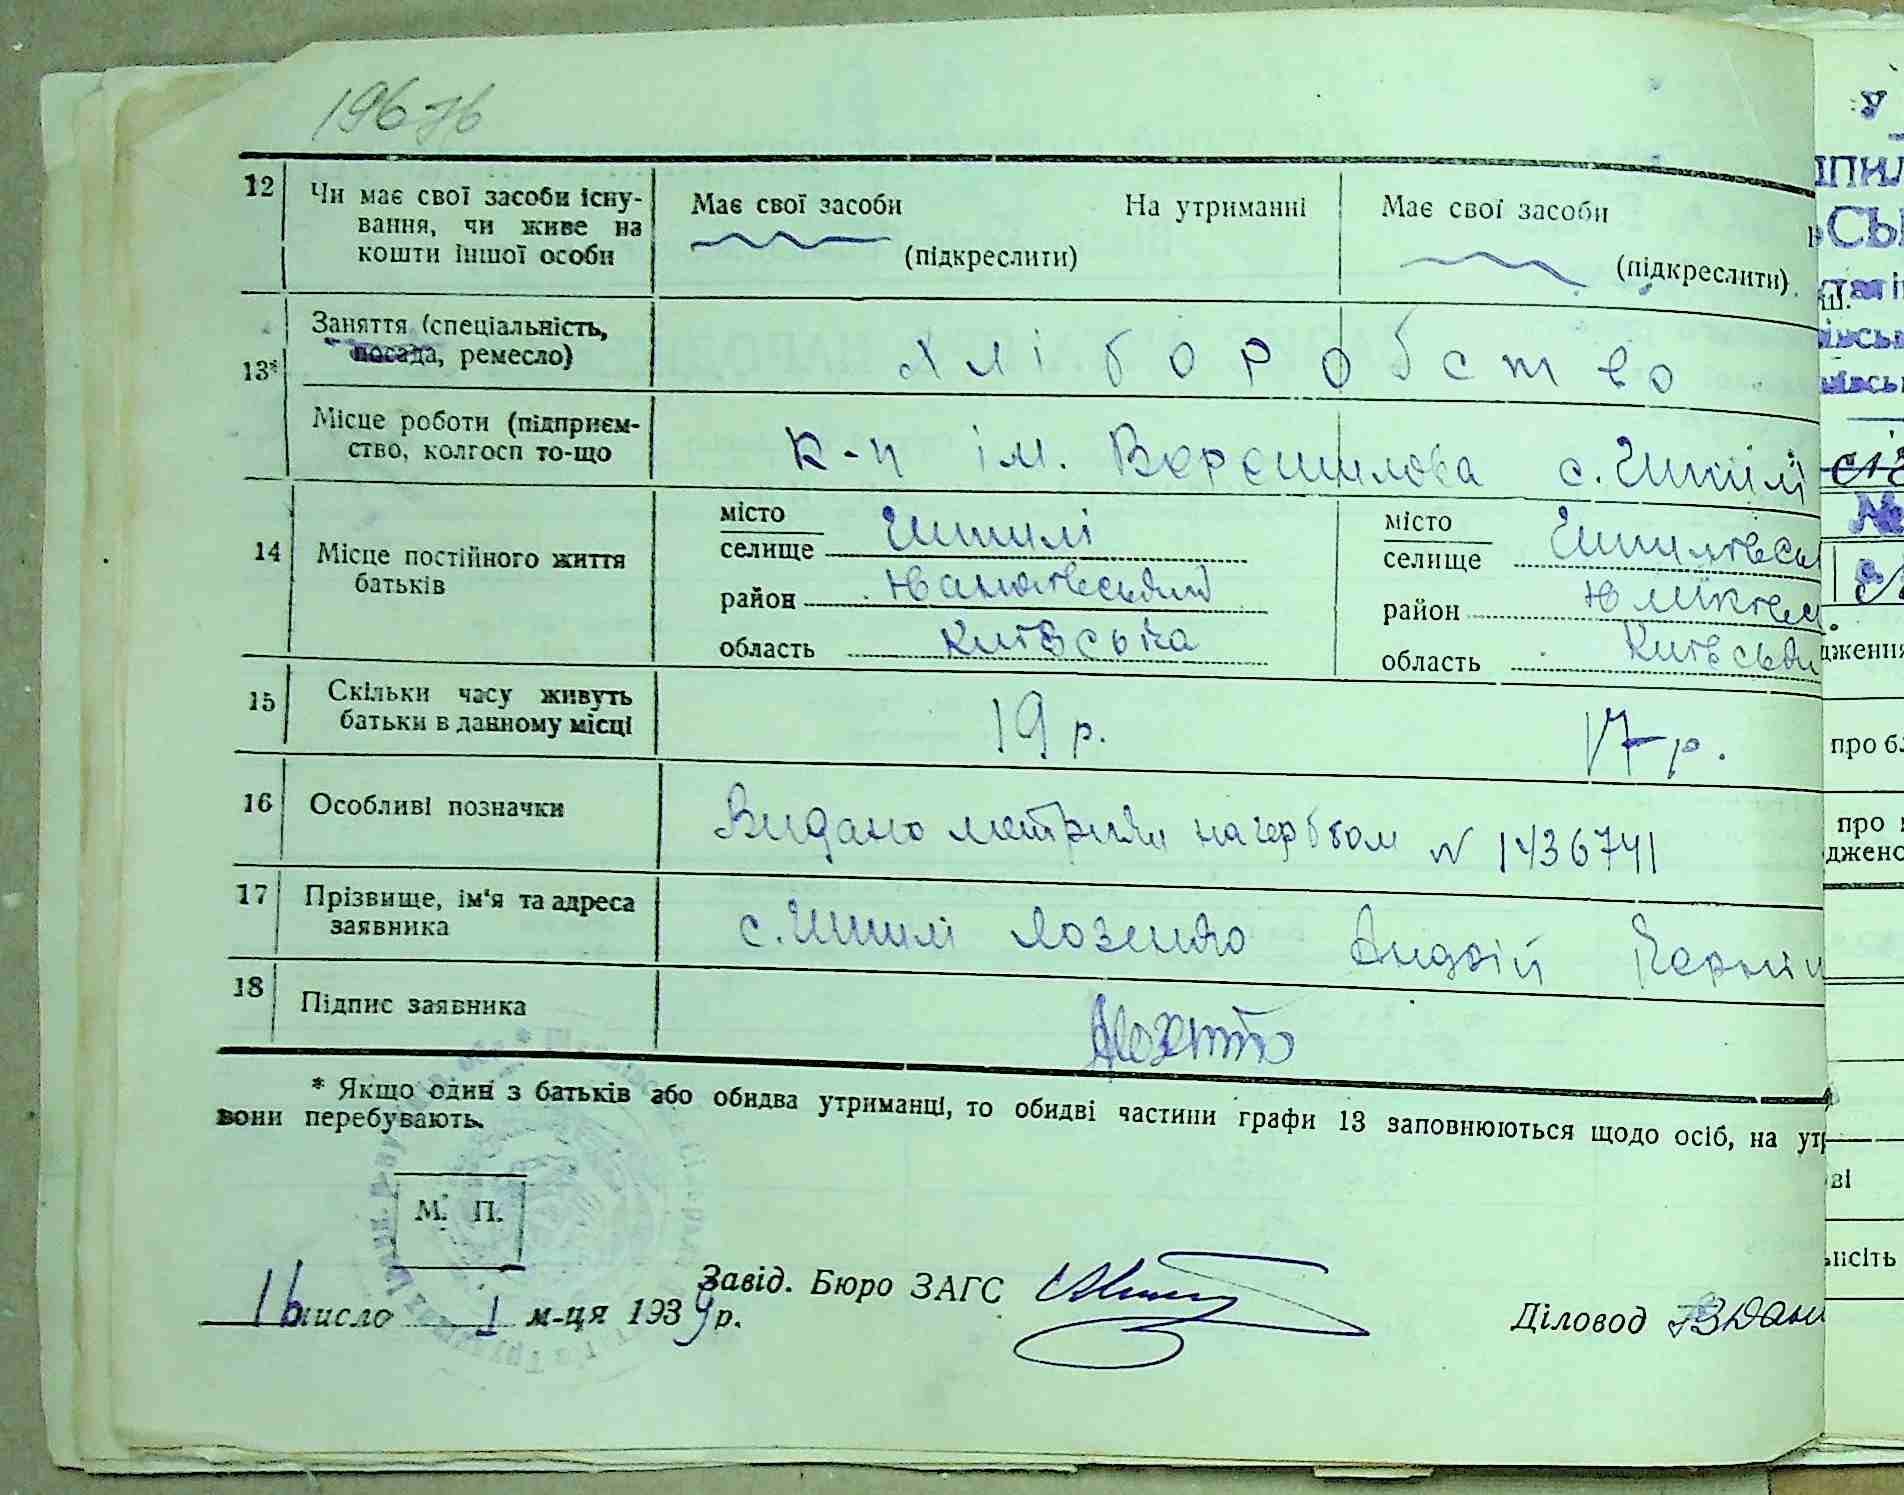 196 зв
12 Чи має свої засоби існу-
вання, чи живе на
кошти іншої особи
Має свої засоби На утриманні Має свої засоби
(підкреслити) (підкреслити)
13* Заняття (спеціальність,
посада, ремесло)
Хліборобство
Місце роботи (підприєм-
ство, колгосп то-що
К-п ім. Ворошилова с. Шпилі
14 Місце постійного життя
батьків
місто
селище Шпилі
район
область Київська
місто
селище
район
область
15 Скільки часу живуть
батьки в данному місці
19 р. 17 р.
16 Особливі позначки
Видано метрики на гербовом № 1436741
17 Прізвище, ім'я та адреса
заявника
с. Шпилі Андрій
18 Підпис заявника
* Якщо один з батьків або обидва утриманці, то обидві частини графи 13 заповнюються щодо осіб, на
вони перебувають.
М. П.
Завід. Бюро ЗАГС
16 число 1 м-ця 1939 р.
Діловод